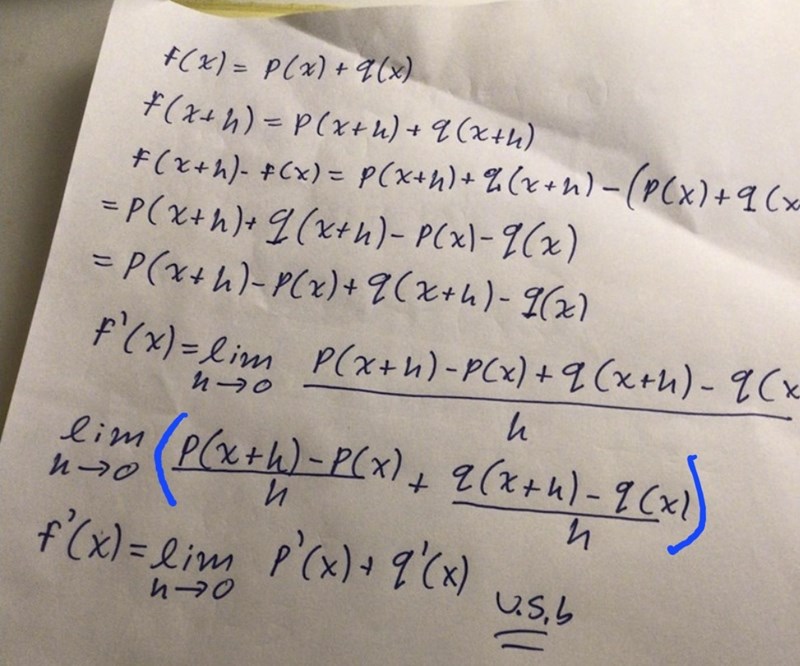 f(x) = p(x) + q(x)
f(x+h) = p(x+h) + q(x+h)
f(x+h) - f(x) = p(x+h) + q(x+h) - (p(x) + q(x
= p(x+h) + q(x+h) - p(x) - q(x)
= p(x+h) - p(x) + q(x+h) - q(x)
f'(x) = lim h→0 p(x+h) - p(x) + q(x+h) - q(x / h
lim h→0 (p(x+h) - p(x) / h + q(x+h) - q(x) / h)
f'(x) = lim h→0 p'(x) + q'(x)
v.s.b